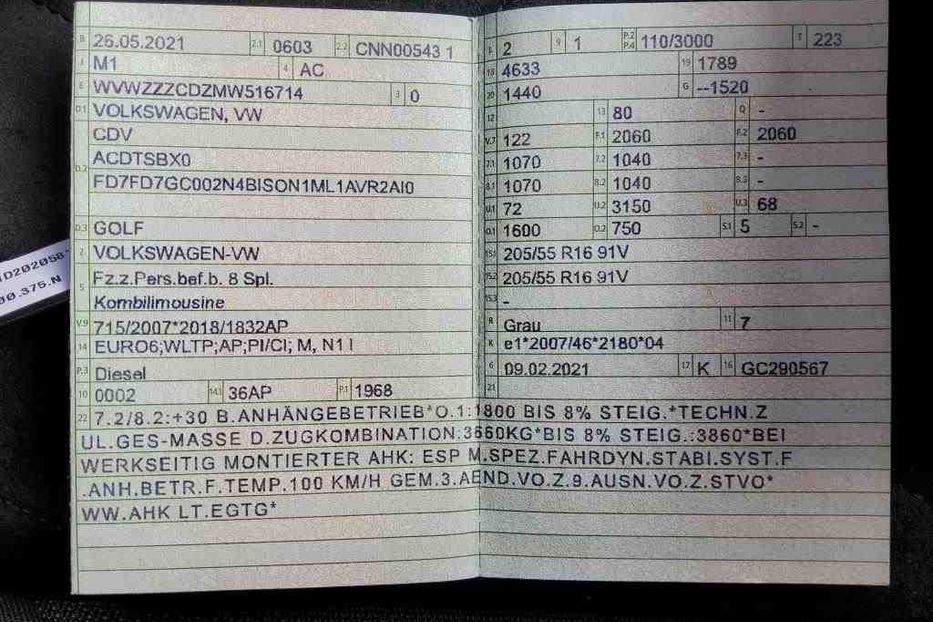 B 26.05.2021 2.1 0603 2.2 CNN00543 1
J M1 4 AC
E WVWZZZCDZMW516714 3 0
D.1 VOLKSWAGEN, VW
CDV
D.2 ACDTSBX0
FD7FD7GC002N4BISON1ML1AVR2AI0
D.3 GOLF
2 VOLKSWAGEN-VW
5 Fz.z.Pers.bef.b. 8 Spl.
Kombilimousine
V.9 715/2007*2018/1832AP
14 EURO6;WLTP;AP;PI/CI; M, N1 I
P.3 Diesel
10 0002 14.1 36AP P.1 1968
L 2 9 1 P.2 P.4 110/3000 T 223
18 4633 19 1789
20 1440 G --1520
12 13 80 Q -
V.7 122 F.1 2060 F.2 2060
7.1 1070 7.2 1040 7.3 -
8.1 1070 8.2 1040 8.3 -
U.1 72 U.2 3150 U.3 68
O.1 1600 O.2 750 S.1 5 S.2 -
15.1 205/55 R16 91V
15.2 205/55 R16 91V
15.3 -
R Grau 11 7
K e1*2007/46*2180*04
6 09.02.2021 17 K 16 GC290567
21
22 7.2/8.2:+30 B.ANHÄNGEBETRIEB*O.1:1800 BIS 8% STEIG.*TECHN.Z
UL.GES-MASSE D.ZUGKOMBINATION:3660KG*BIS 8% STEIG.:3860*BEI
WERKSEITIG MONTIERTER AHK: ESP M.SPEZ.FAHRDYN.STABI.SYST.F
.ANH.BETR.F.TEMP.100 KM/H GEM.3.AEND.VO.Z.9.AUSN.VO.Z.STVO*
WW.AHK LT.EGTG*